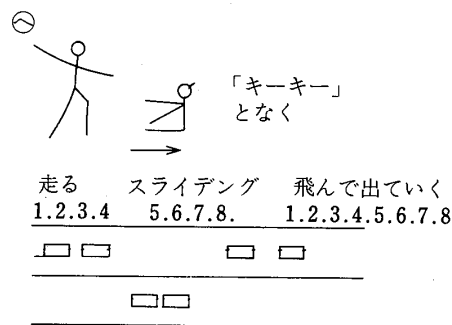 「キーキー」
となく
走る スライデング 飛んで出ていく
1.2.3.4 5.6.7.8. 1.2.3.4.5.6.7.8